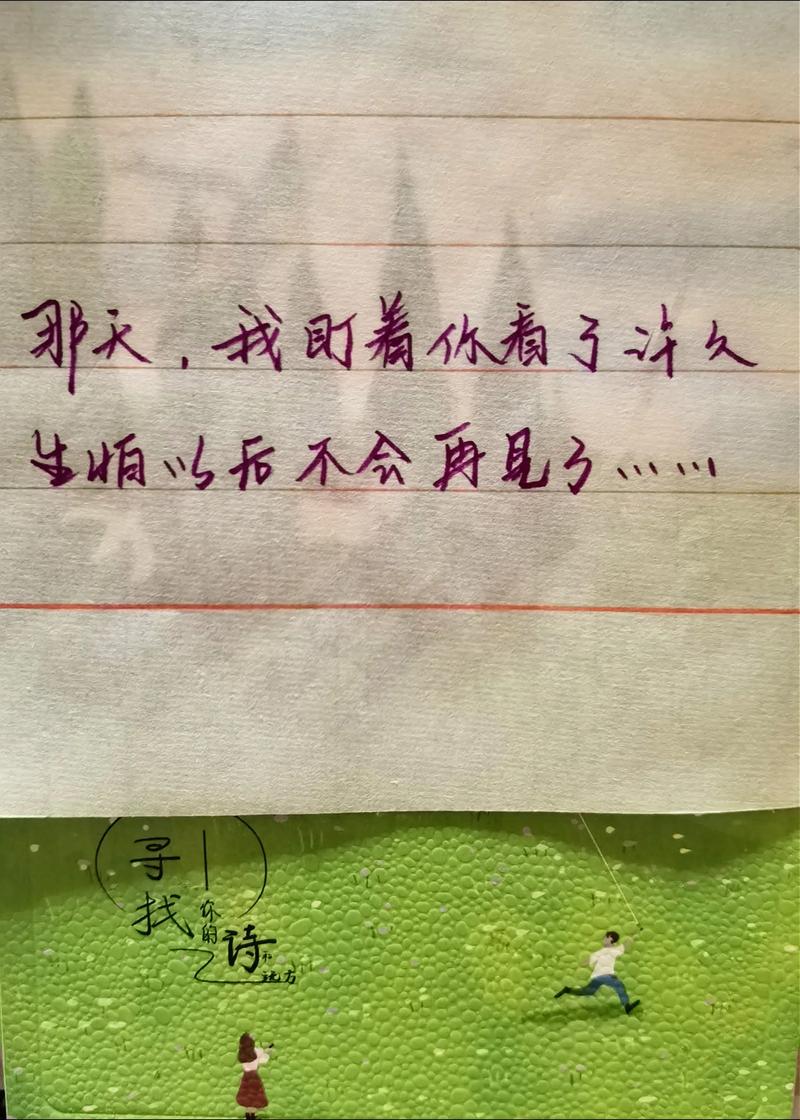 那天，我盯着你看了许久
生怕以后不会再见了……
寻
找
你的
诗和
远方